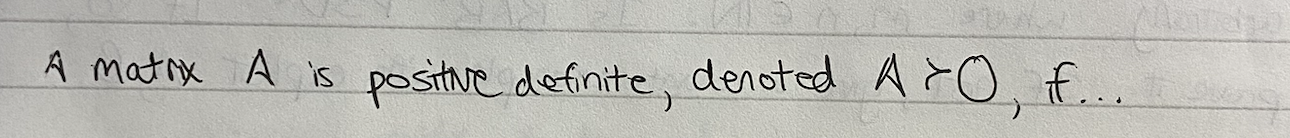 A matrix A is positive definite, denoted A≻0, if...